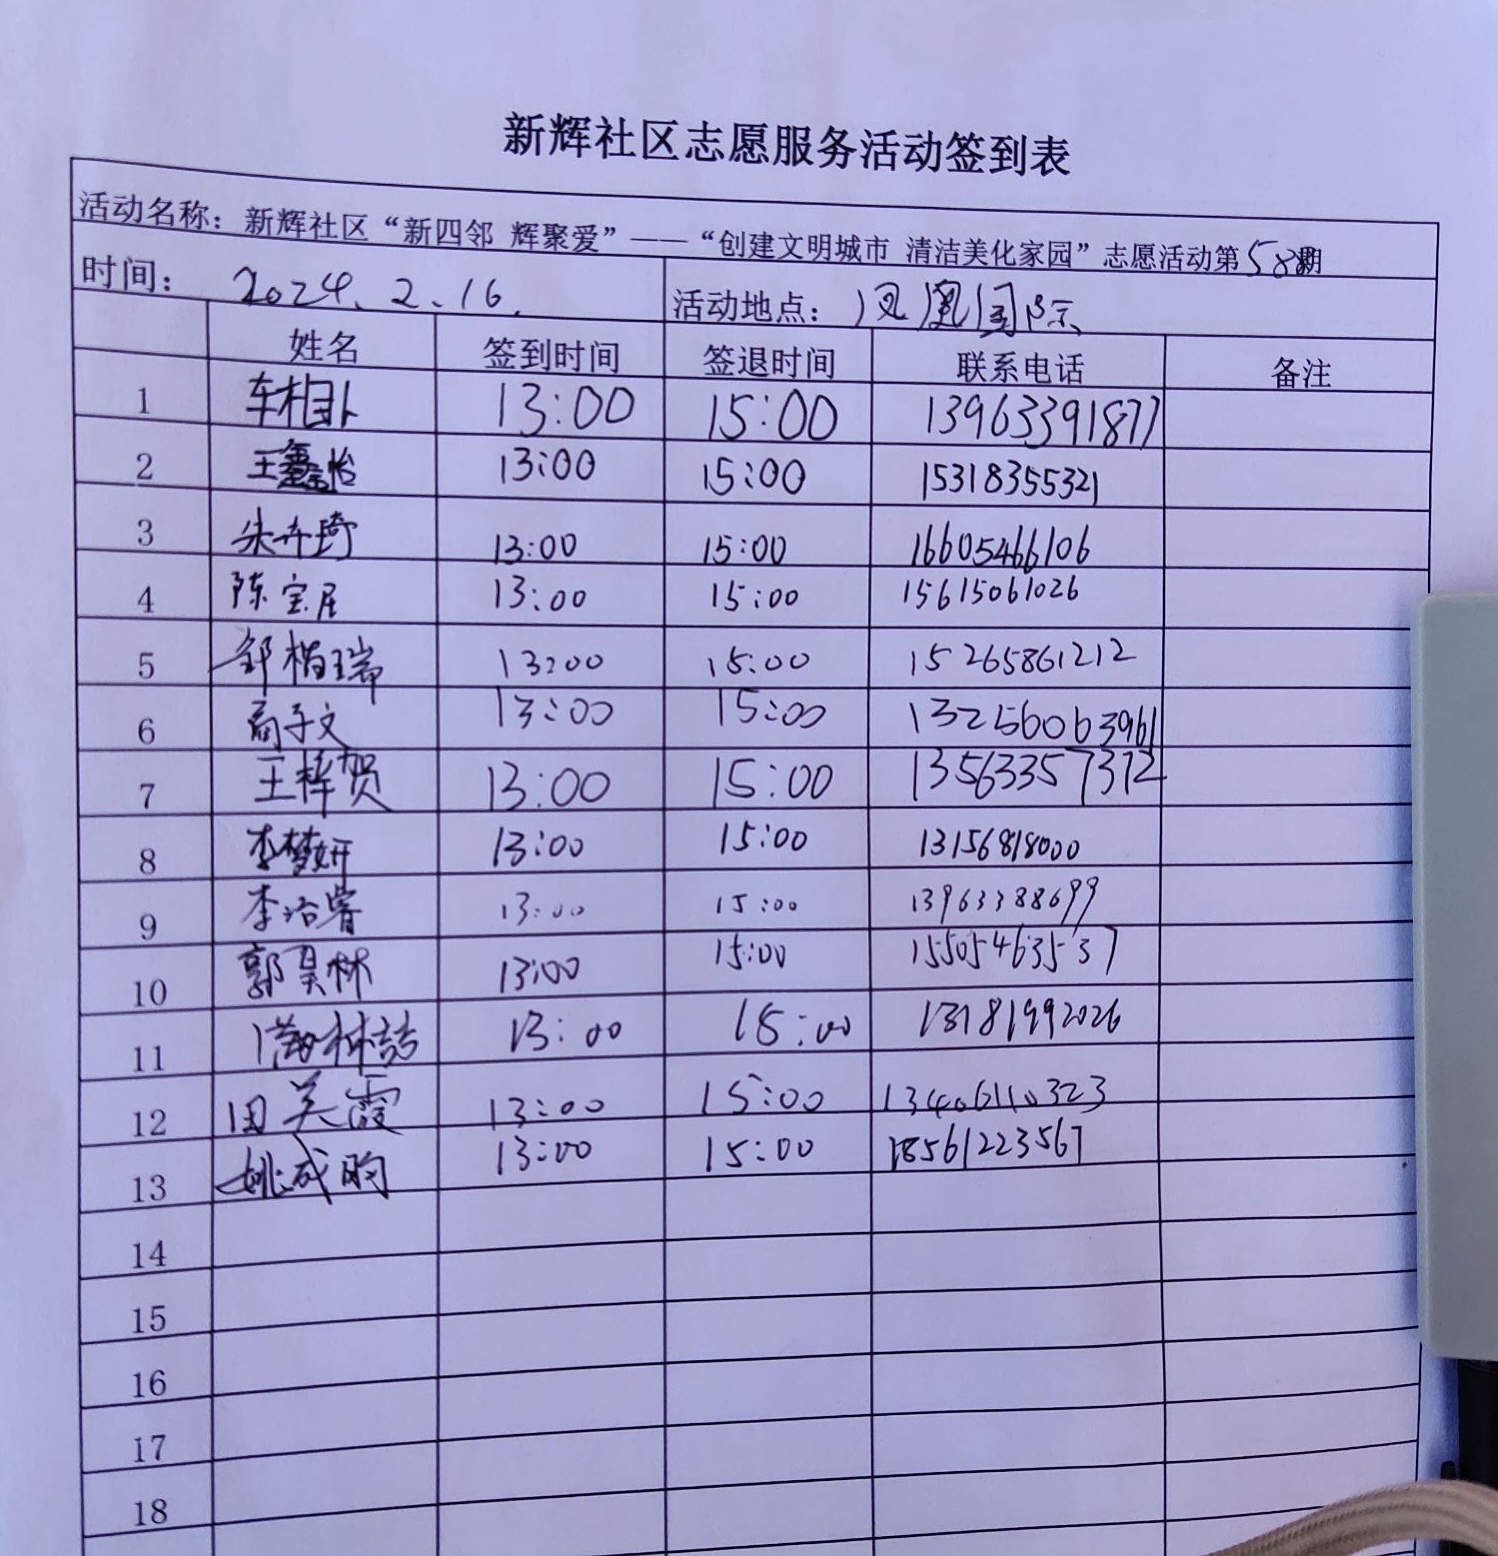 新辉社区志愿服务活动签到表
活动名称：新辉社区“新四邻 辉聚爱”——“创建文明城市 清洁美化家园”志愿活动第58期
时间： 2024.2.16. 活动地点：凤凰国际
姓名 签到时间 签退时间 联系电话 备注
1 车相卧 13:00 15:00 13963391877
2 王鑫怡 13:00 15:00 15318355321
3 朱卉琦 13:00 15:00 16605466106
4 陈宝居 13:00 15:00 15615061026
5 邹楷瑞 13:00 15:00 15265861212
6 商子文 13:00 15:00 13256063961
7 王梓贺 13:00 15:00 13563357372
8 李梦妍 13:00 15:00 13156818000
9 李浴睿 13:00 15:00 13963388699
10 郭昊林 13:00 15:00 15505463537
11 13:00 15:00 13181992026
12 田美霞 13:00 15:00 13406110323
13 姚成昀 13:00 15:00 18561223567
14
15
16
17
18